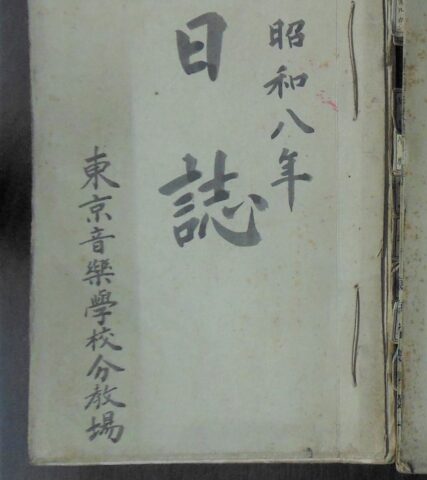 昭和八年
日誌
東京音樂學校分教場